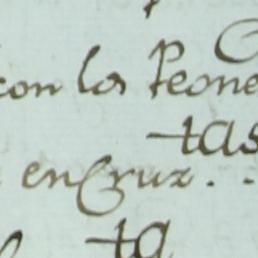 con los Peone
tas
en Cruz . .
ta